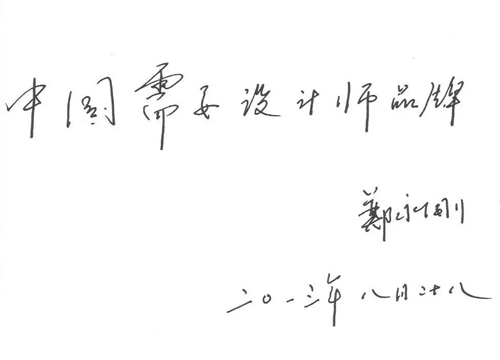 中国需要设计师品牌
鄭永刚
二〇一三年八月廿八